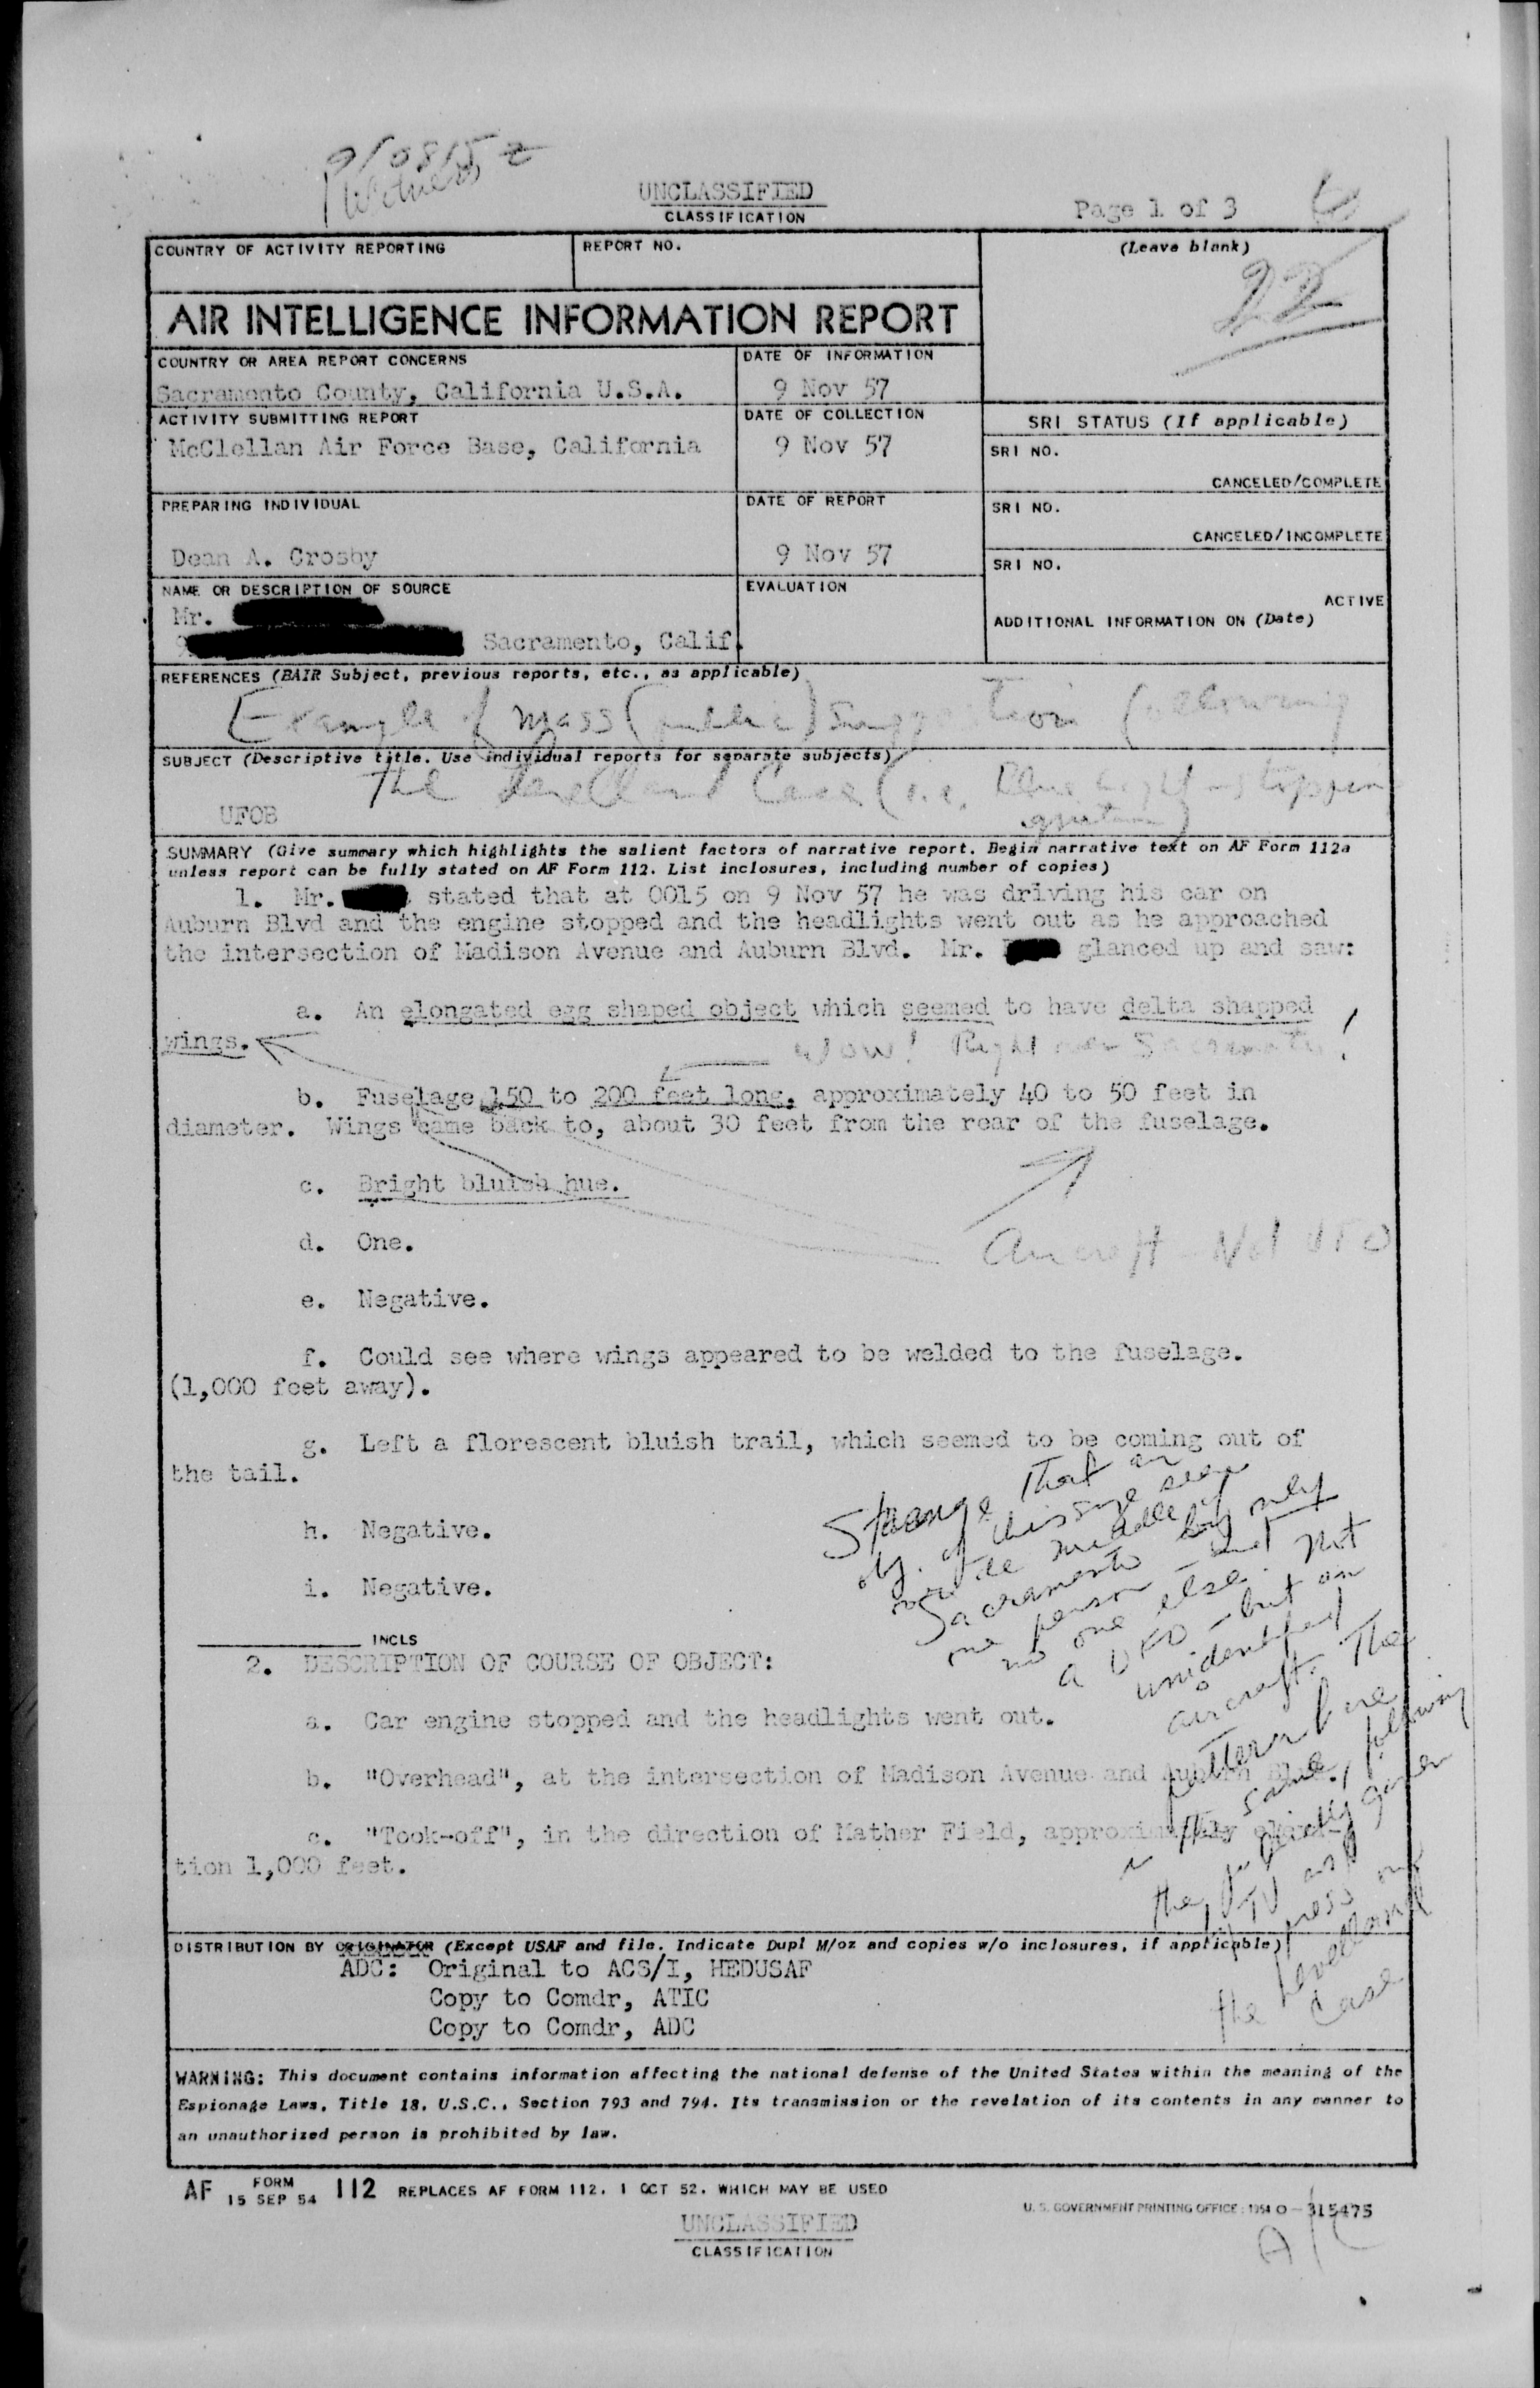 9/0815 z
1 Witness
UNCLASSIFIED
CLASSIFICATION
Page 1 of 3
COUNTRY OF ACTIVITY REPORTING
REPORT NO.
(Leave blank)
22
AIR INTELLIGENCE INFORMATION REPORT
COUNTRY OR AREA REPORT CONCERNS
DATE OF INFORMATION
Sacramento County, California U.S.A.
9 Nov 57
ACTIVITY SUBMITTING REPORT
DATE OF COLLECTION
SRI STATUS (If applicable)
McClellan Air Force Base, California
9 Nov 57
SRI NO.
CANCELED/COMPLETE
PREPARING INDIVIDUAL
DATE OF REPORT
SRI NO.
CANCELED/INCOMPLETE
Dean A. Crosby
9 Nov 57
SRI NO.
NAME OR DESCRIPTION OF SOURCE
EVALUATION
ACTIVE
Mr.
ADDITIONAL INFORMATION ON (Date)
9
Sacramento, Calif.
REFERENCES (BAIR Subject, previous reports, etc., as applicable)
Example of mass (public) suggestion (following
SUBJECT (Descriptive title. Use individual reports for separate subjects)
the Levelland Case (i.e. stopping
UFOB
SUMMARY (Give summary which highlights the salient factors of narrative report. Begin narrative text on AF Form 112a
unless report can be fully stated on AF Form 112. List inclosures, including number of copies)
1. Mr. stated that at 0015 on 9 Nov 57 he was driving his car on
Auburn Blvd and the engine stopped and the headlights went out as he approached
the intersection of Madison Avenue and Auburn Blvd. Mr. glanced up and saw:
a. An elongated egg shaped object which seemed to have delta shapped
wings.
Wow! Right over Sacramento!
b. Fuselage 150 to 200 feet long, approximately 40 to 50 feet in
diameter. Wings came back to, about 30 feet from the rear of the fuselage.
c. Bright bluish hue.
d. One.
Aircraft - Not UFO
e. Negative.
f. Could see where wings appeared to be welded to the fuselage.
(1,000 feet away).
g. Left a florescent bluish trail, which seemed to be coming out of
the tail.
Strange that an
obj. of this size seen
over the middle of
Sacramento by only
one person - but
no one else. Not
a UFO - but an
unidentified
aircraft. The
pattern here
is the same, following
the publicity given
TV and
press on
the Levelland
Case
h. Negative.
i. Negative.
INCLS
2. DESCRIPTION OF COURSE OF OBJECT:
a. Car engine stopped and the headlights went out.
b. "Overhead", at the intersection of Madison Avenue and Auburn Blvd.
c. "Took-off", in the direction of Mather Field, approximately eleva-
tion 1,000 feet.
DISTRIBUTION BY ORIGINATOR (Except USAF and file. Indicate Dupl M/oz and copies w/o inclosures, if applicable)
ADC: Original to ACS/I, HEDUSAF
Copy to Comdr, ATIC
Copy to Comdr, ADC
WARNING: This document contains information affecting the national defense of the United States within the meaning of the
Espionage Laws, Title 18, U.S.C., Section 793 and 794. Its transmission or the revelation of its contents in any manner to
an unauthorized person is prohibited by law.
AF FORM 15 SEP 54 112 REPLACES AF FORM 112, 1 OCT 52, WHICH MAY BE USED
U. S. GOVERNMENT PRINTING OFFICE : 1954 O - 315475
UNCLASSIFIED
CLASSIFICATION
A/C